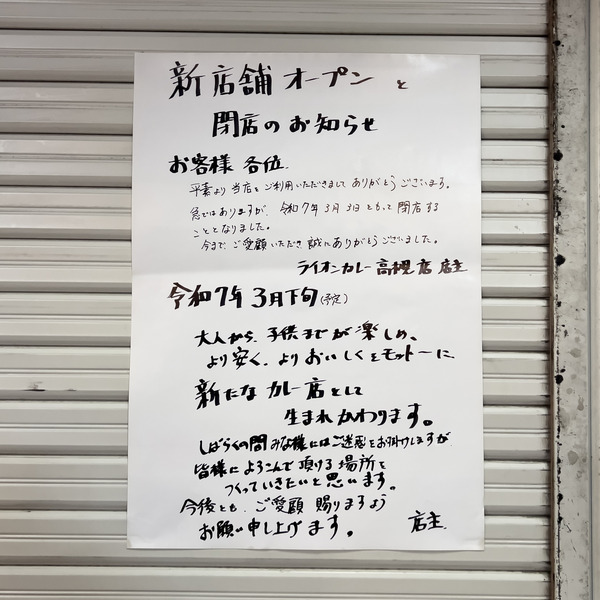 新店舗オープンと
閉店のお知らせ
お客様 各位.
平素より当店をご利用いただきまして ありがとうございます。
急ではありますが、令和7年3月3日をもって閉店する
こととなりました。
今まで、ご愛顧いただき 誠にありがとうございました。
ライオンカレー 高槻店 店主
令和7年 3月下旬(予定)
大人から、子供までが楽しめ、
より安く、よりおいしくをモットーに
新たなカレー店として
生まれかわります。
しばらくの間みな様にはご迷惑をお掛けしますが
皆様によろこんで頂ける場所を
つくっていきたいと思います。
今後とも、ご愛顧 賜りますよう
お願い申し上げます。
店主.